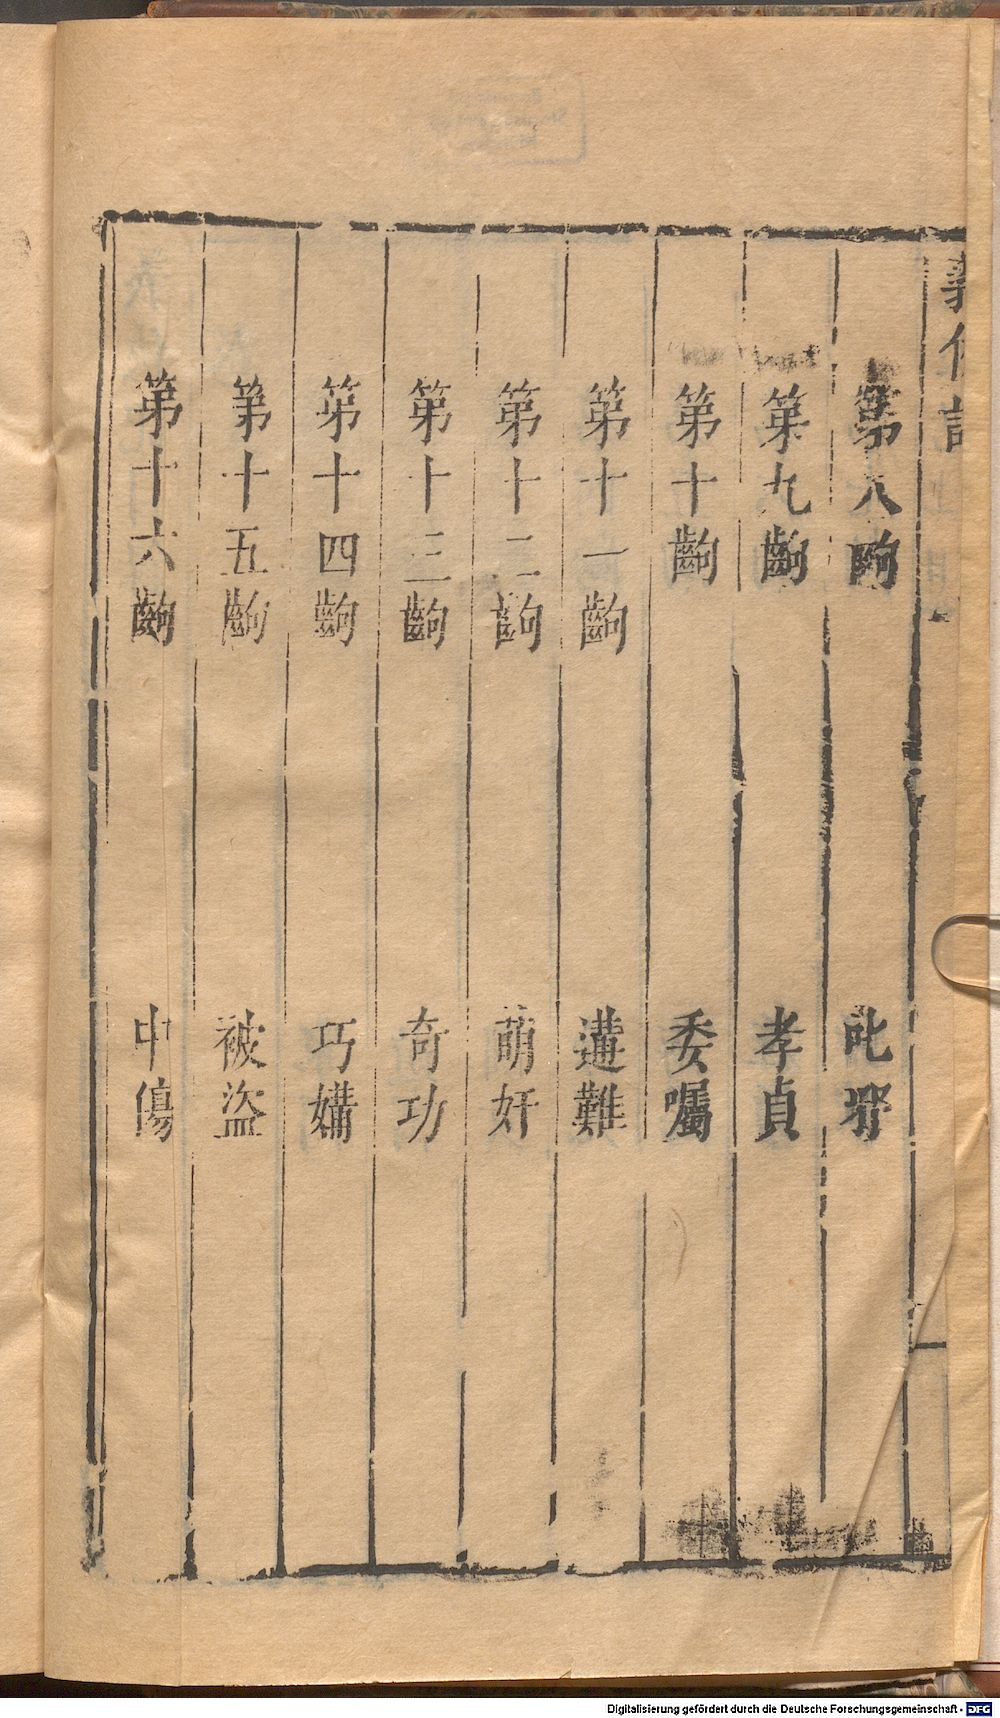 義俠記
第八齣 叱邪
第九齣 孝貞
第十齣 委囑
第十一齣 遘難
第十二齣 萌奸
第十三齣 奇功
第十四齣 巧媾
第十五齣 被盗
第十六齣 中傷
Digitalisierung gefördert durch die Deutsche Forschungsgemeinschaft - DFG